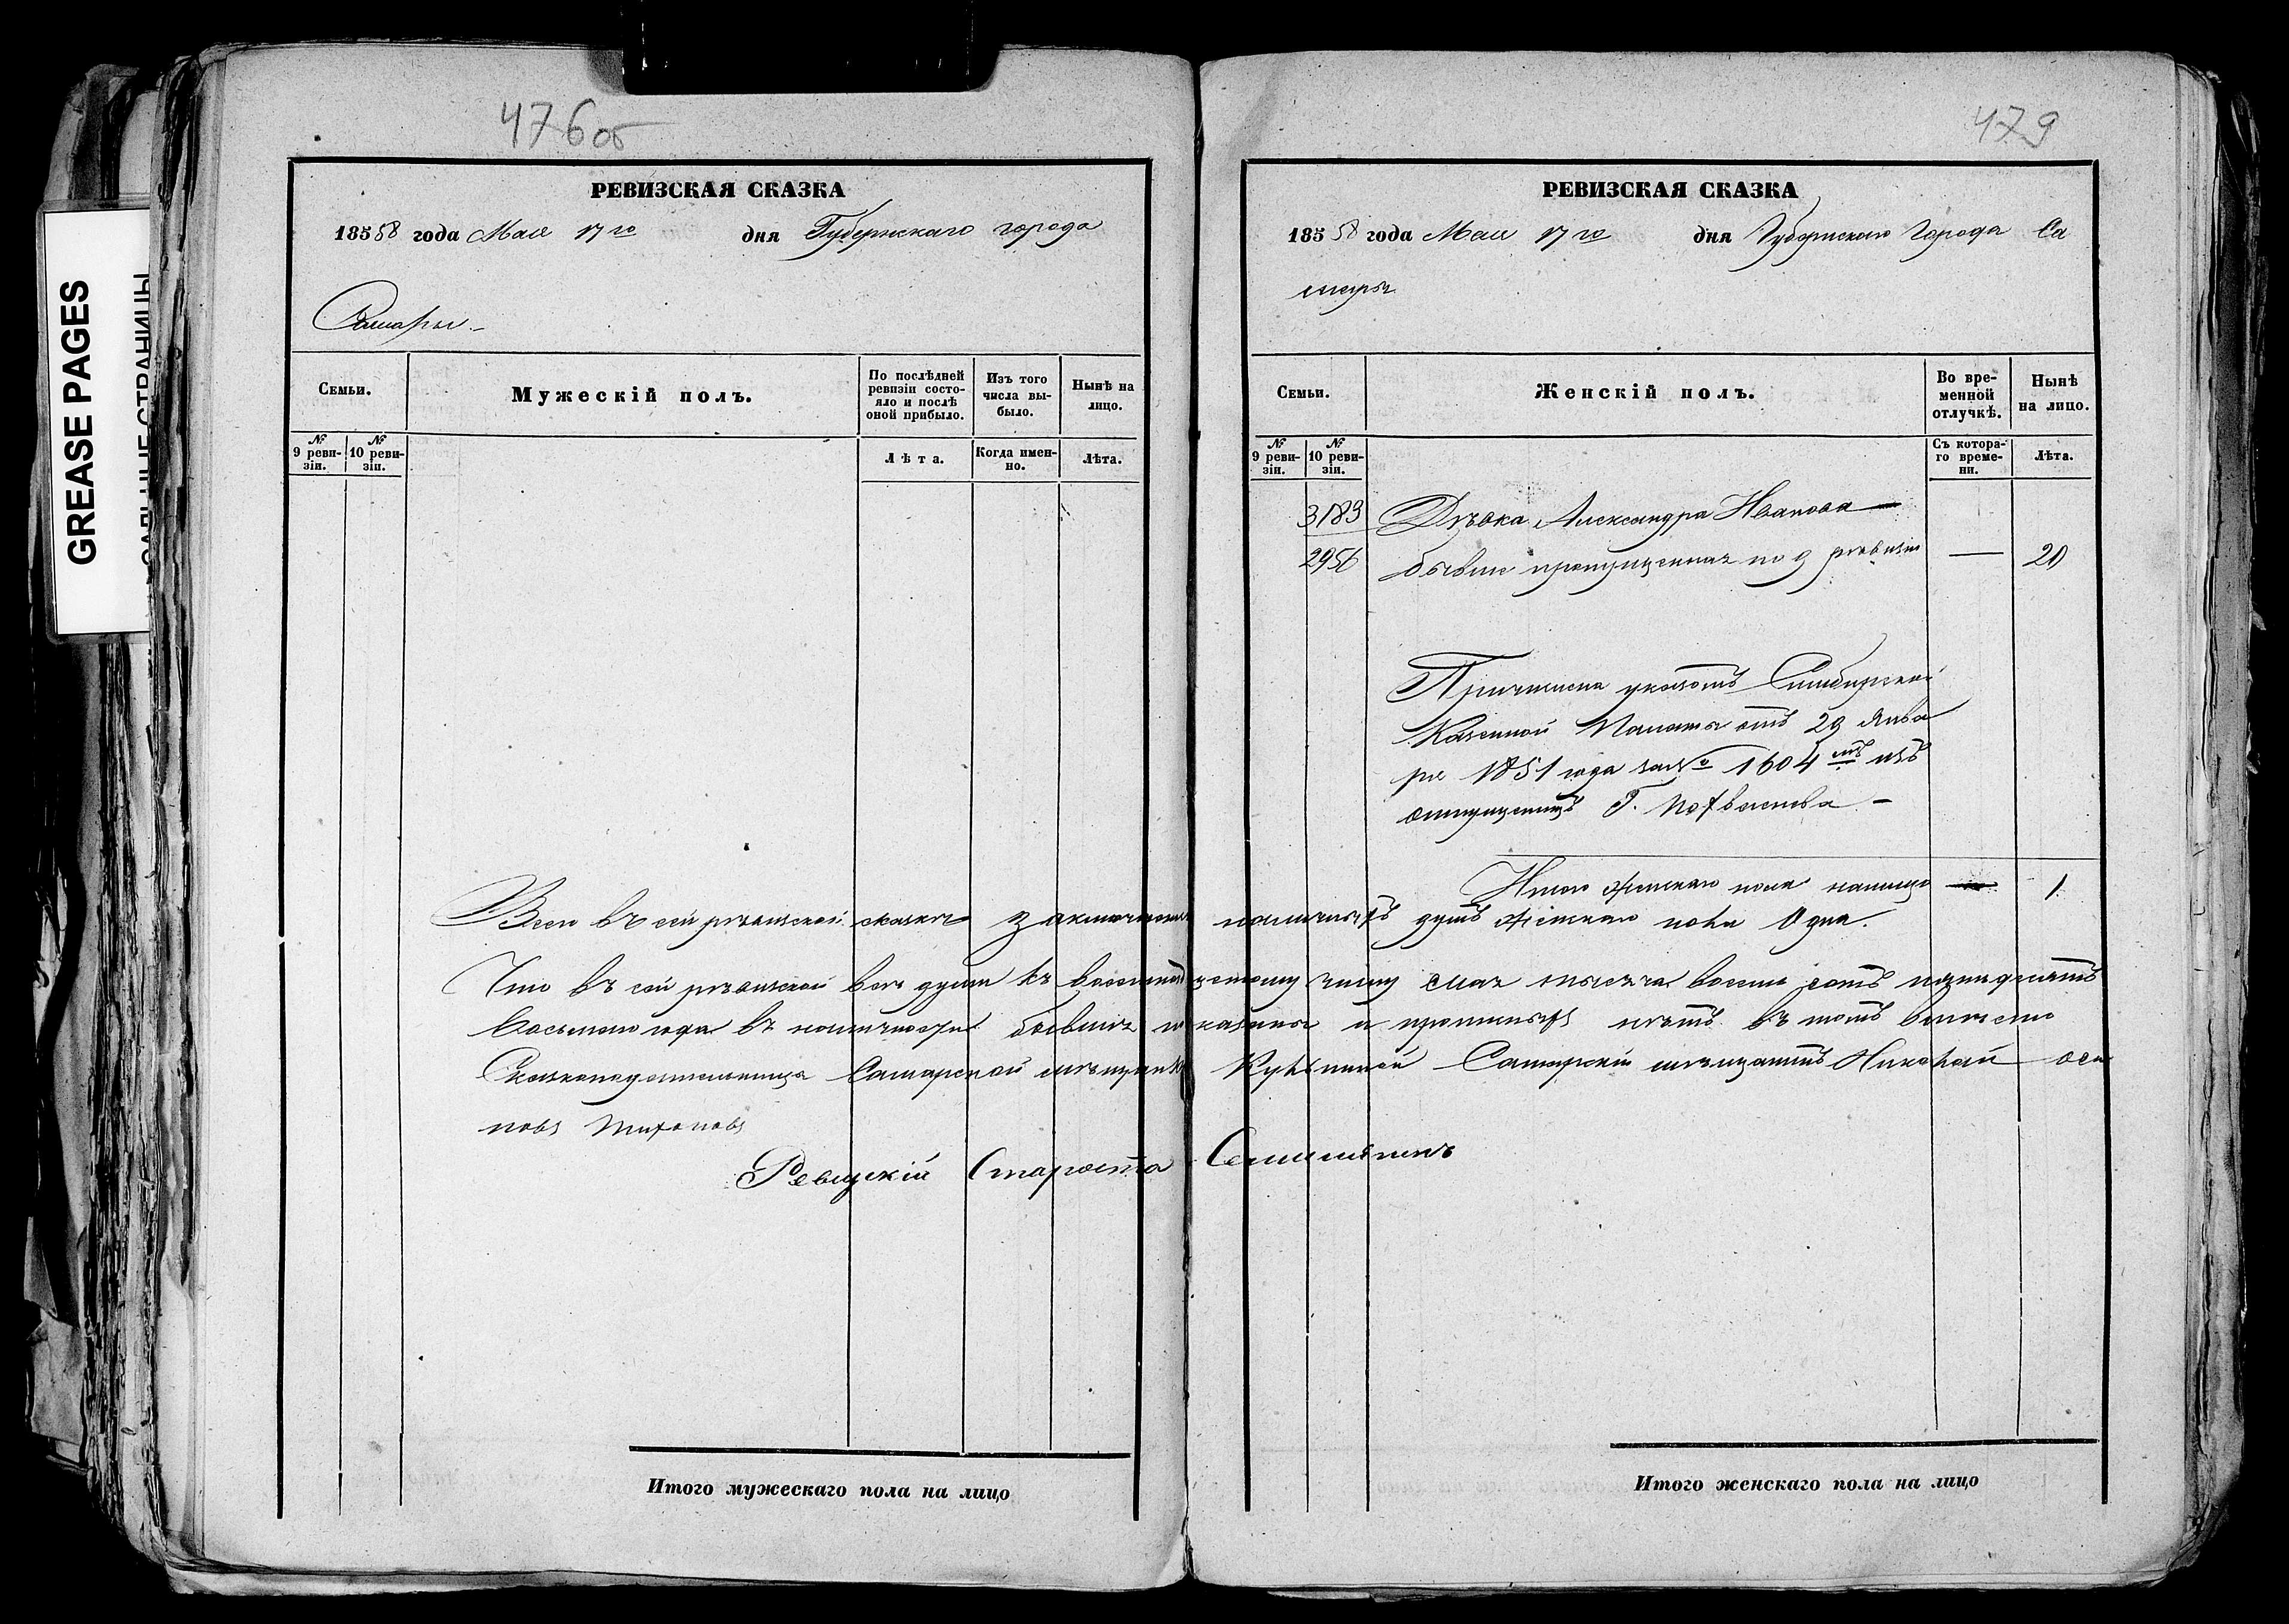 GREASE PAGES
476об
РЕВИЗСКАЯ СКАЗКА
18558 года Мая 17го дня Губернскаго города
Самары.
Семьи.
Мужескій полъ.
По послѣдней ревизіи состояло и послѣ оной прибыло.
Изъ того числа выбыло.
Нынѣ на лицо.
№ 9 ревизіи.
№ 10 ревизіи.
Лѣта.
Когда именно.
Лѣта.
479
РЕВИЗСКАЯ СКАЗКА
18558 года Мая 17го дня Губернскаго Города Са
мары
Семьи.
Женскій полъ.
Во временной отлучкѣ.
Нынѣ на лицо.
№ 9 ревизіи.
№ 10 ревизіи.
Съ котораго времени.
Лѣта.
3183 Дѣвка Александра Иванова
2956 бывше пропущенная по 9 ревизіи — 20
Причислена указомъ Симбирской
Казенной Палаты отъ 29 Янва
ря 1851 года за № 1604 мъ изъ
отпущенницъ Г.
Итого женскаго пола налицо — 1
Всего въ сей ревизской сказке заключается наличныхъ душъ женскаго пола Одна.
Что въ сей ревизской все души къ числу мая тысяча восемь сотъ пятьдесятъ
Восьмаго года въ наличности бывшія показаны и прописныхъ нѣтъ въ томъ вместо
Сказкоподательница Самарской мѣщанки Самарскій мѣщанинъ Николай оси
повъ Тихоновъ
Ревизскій Староста
Итого мужескаго пола на лицо
Итого женскаго пола на лицо